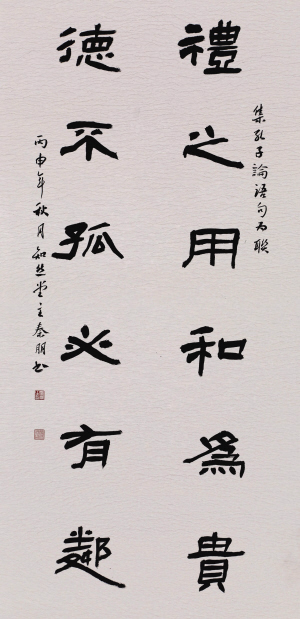 集孔子論語句為聯
禮之用和為貴
德不孤必有鄰
丙申年秋月知止堂主秦朋書